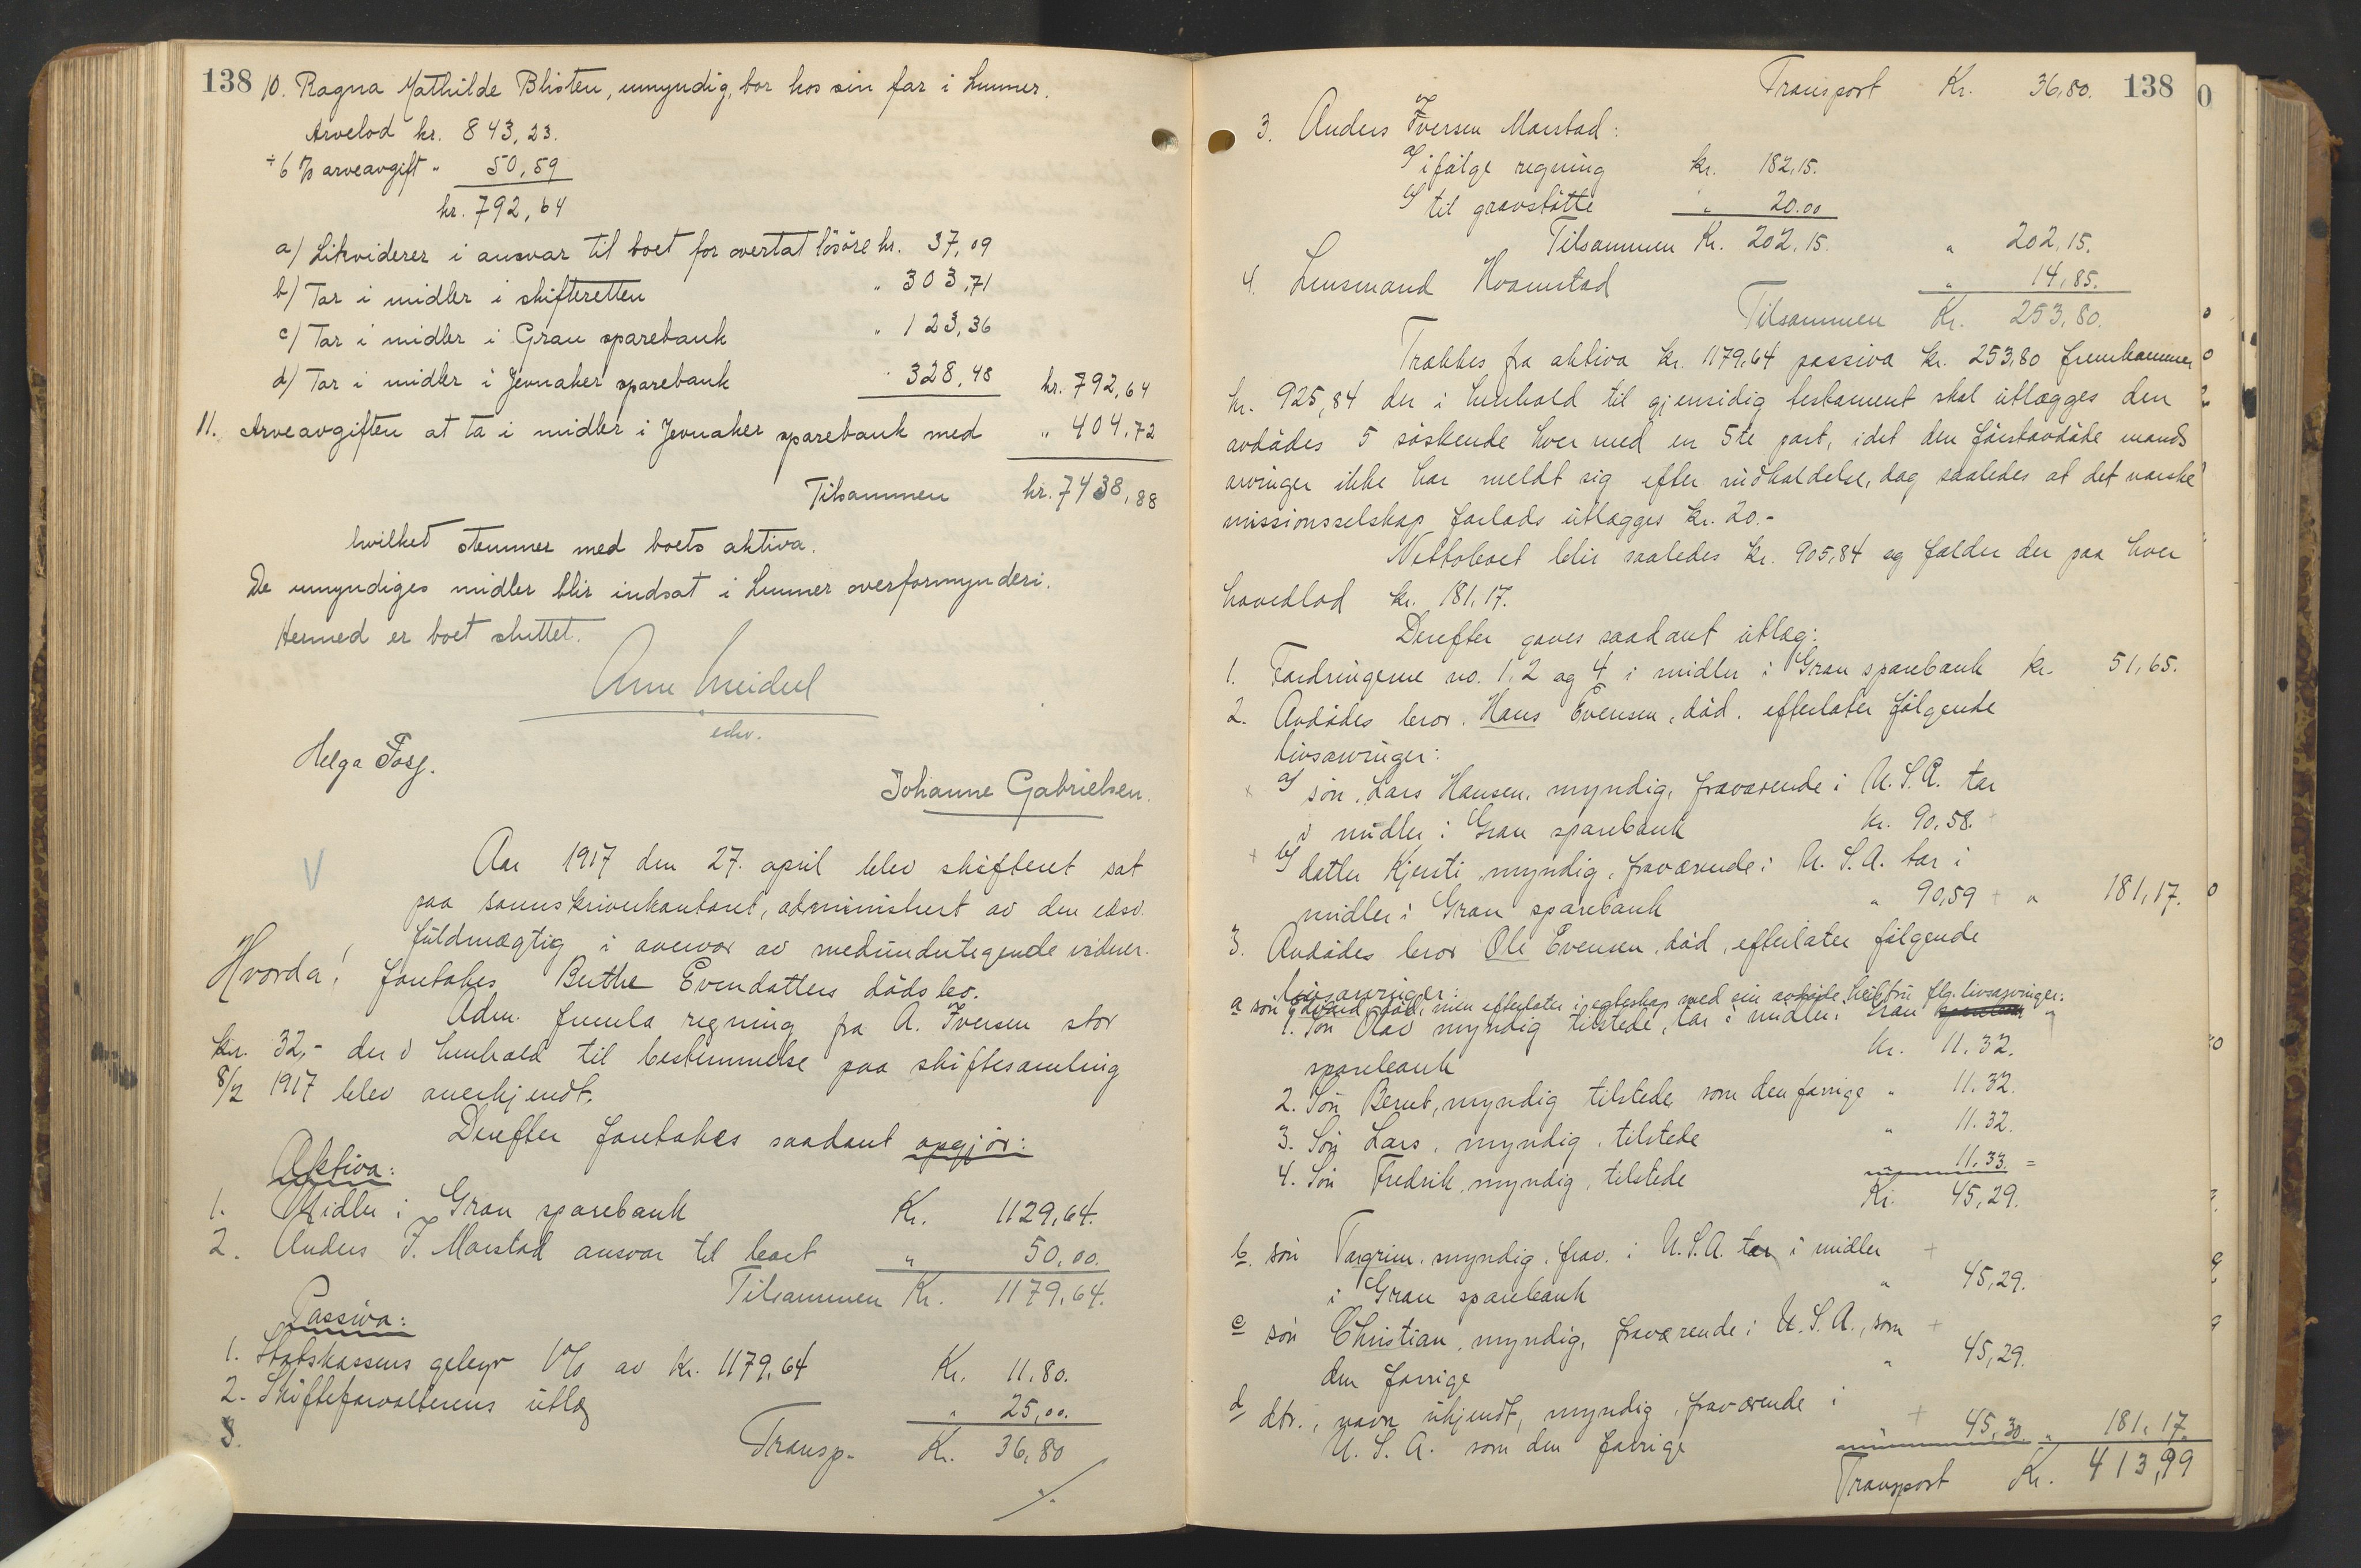 138
10. Ragna Mathilde Blisten, umyndig, bor hos sin far i Lunner.
Arvelod kr. 843,23.
÷ 6 % arveavgift " 50,59
kr. 792,64
a) Likviderer i ansvar til boet for overtat lösöre kr. 37,09
b) Tar i midler i skifteretten " 303,71
c) Tar i midler i Gran sparebank " 123,36
d) Tar i midler i Jevnaker sparebank " 328,48 kr. 792,64
11. Arveavgiften at ta i midler i Jevnaker sparebank med " 404,72
Tilsammen kr. 7438,88
hvilket stemmer med boets aktiva.
De umyndiges midler blir indsat i Lunner overformynderi.
Hermed er boet sluttet.
edsv.
Helga Fosf.
Johanne Gabrielsen.
V
Aar 1917 den 27. april blev skifteret sat
paa sorenskriverkontoret, administrert av den edsv.
fuldmægtig i overvær av medundertegnede vidner.
Hvorda!
foretokes Berthe Evendatters dödsbo.
Adm. fremla regning fra A. Iversen stor
kr. 32,- der i henhold til bestemmelse paa skiftesamling
8/2 1917 blev anerkjendt.
Derefter foretokes saadant opgjör:
Aktiva:
1. Midler i Gran sparebank Kr. 1129,64.
2. Anders I. Morstad ansvar til boet " 50,00.
Tilsammen Kr. 1179,64.
Passiva:
1. Statskassens gebyr 1% av kr. 1179,64 Kr. 11.80.
2. Skifteforvalterens utlæg " 25,00.
3.
Transp. Kr. 36,80
./.
Transport Kr. 36,80. 138
0
3. Anders Iversen Morstad:
a/ ifölge regning kr. 182,15.
b/ til gravstötte " 20.00
Tilsammen Kr. 202,15. " 202,15.
4. Lensmand Hvamstad " 14,85.
Tilsammen Kr. 253,80.
Trækkes fra aktiva kr. 1179,64 passiva kr. 253,80 fremkommer
kr. 925,84 der i henhold til gjensidig testament skal utlægges den
avdödes 5 söskende hver med en 5te part, idet den förstavdöde mands
arvinger ikke har meldt sig efter indkaldelse, dog saaledes at det norske
missionsselskap forlods utlægges kr. 20.-
Nettoboet blir saaledes kr. 905,84 og falder der paa hver
hovedlod kr. 181,17.
Derefter gaves saadant utlæg:
1. Fordringerne no. 1, 2 og 4 i midler i Gran sparebank kr. 51,65.
2. Avdödes bror, Hans Evensen, död, efterlater fölgende
livsarvinger:
a/ sön, Lars Hansen, myndig, fraværende i U.S.A. tar
i midler i Gran sparebank kr. 90,58. +
b/ datter Kjersti myndig, fraværende i U.S.A. tar i
midler i Gran sparebank " 90,59 + " 181,17.
3. Avdödes bror Ole Evensen, död, efterlater fölgende
livsarvinger:
a sön Edvard, död, men efterlater i egteskap med sin avdöde hustru flg. livsarvinger:
1. Sön Olav myndig tilstede, tar i midler i Gran
sparebank kr. 11.32.
2. Sön Bernt, myndig tilstede, som den forrige " 11.32.
3. Sön Lars, myndig, tilstede " 11.32.
4. Sön Fredrik, myndig, tilstede 11.33 =
Kr. 45,29.
b. sön Torgrim, myndig, frav. i U.S.A. tar i midler +
i Gran sparebank " 45,29.
c sön Christian, myndig, fraværende i U.S.A., som +
den forrige " 45,29.
d dtr., navn ukjendt, myndig, fraværende i
U.S.A. som den forrige + 45,30. " 181,17.
Transport Kr. 413,99